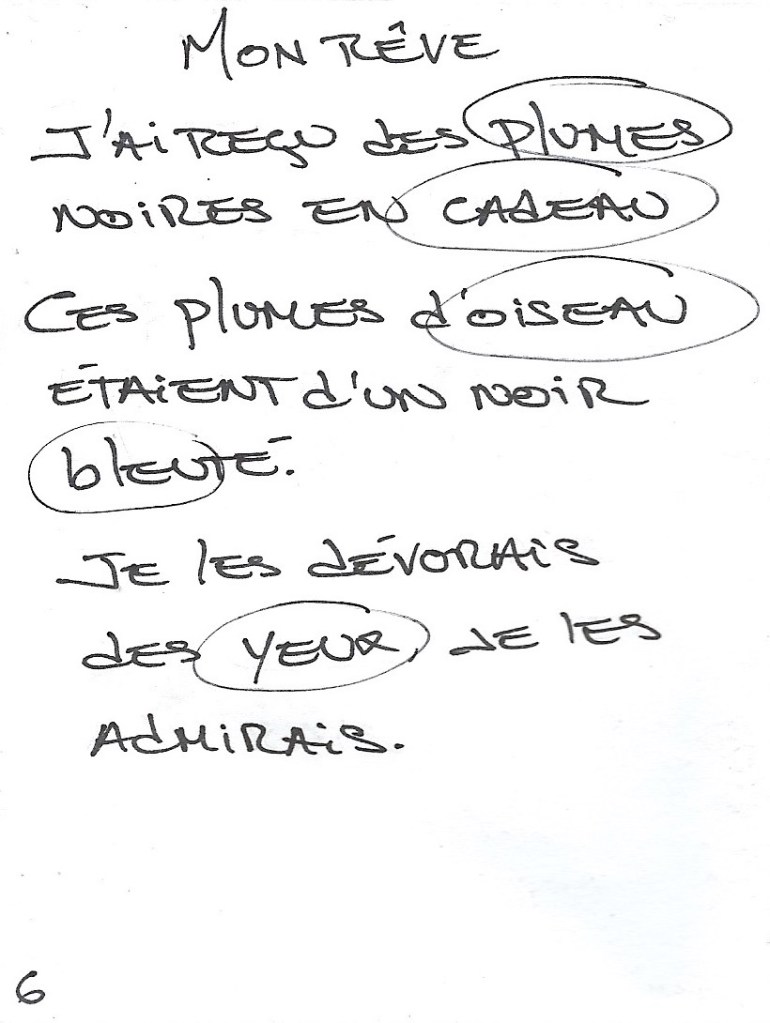 MON RÊVE
J'AI REÇU dES PlUMES
NOIRES EN CADEAU
CES PlUMES d'OISEAU
ÉTAIENT d'UN NOIR
blEUTÉ.
JE lES dÉVORAIS
dES YEUX, JE lES
AdMIRAIS.
6